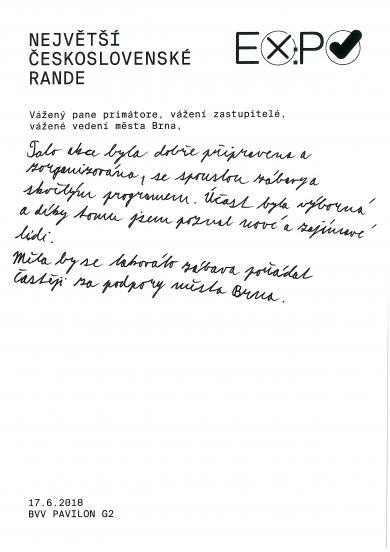 NEJVĚTŠÍ
ČESKOSLOVENSKÉ
RANDE
EX:PO
Vážený pane primátore, vážení zastupitelé,
vážené vedení města Brna,
Tato akce byla dobře připravena a
zorganizována, se spoustou zábavy a
skvělým programem. Účast byla výborná
a díky tomu jsem poznal nové a zajímavé
lidi.
Měla by se takováto zábava pořádat
častěji za podpory města Brna.
17.6.2018
BVV PAVILON G2